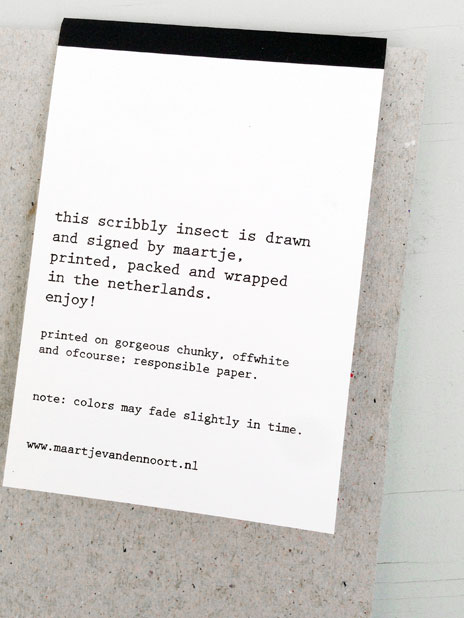 this scribbly insect is drawn
and signed by maartje,
printed, packed and wrapped
in the netherlands.
enjoy!
printed on gorgeous chunky, offwhite
and ofcourse; responsible paper.
note: colors may fade slightly in time.
www.maartjevandennoort.nl